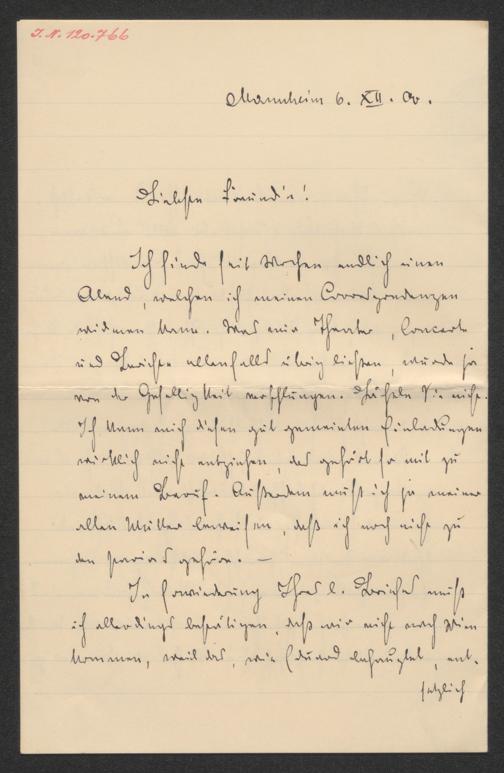 I.N. 120.766
Mannheim 6. XII. 90.
Liebster Freund!
Ich finde seit Wochen endlich einen
Abend, welchen ich meinen Correspondenzen
widmen kann. Was mir Theater, Concerte
und Berichte allenfalls übrig ließen, wurde ja
von der Geselligkeit verschlungen. Lächeln Sie nicht.
Ich kann mich diesen gut gemeinten Einladungen
wirklich nicht entziehen, das gehört so mit zu
meinem Beruf. Außerdem muß ich ja meiner
alten Mutter beweisen, daß ich noch nicht zu
den Parias gehöre. —
In Erwiederung Ihres l. Briefes muß
ich allerdings bestätigen, daß wir nicht nach Wien
kommen, weil das, wie Eduard behauptet, ent-
setzlich